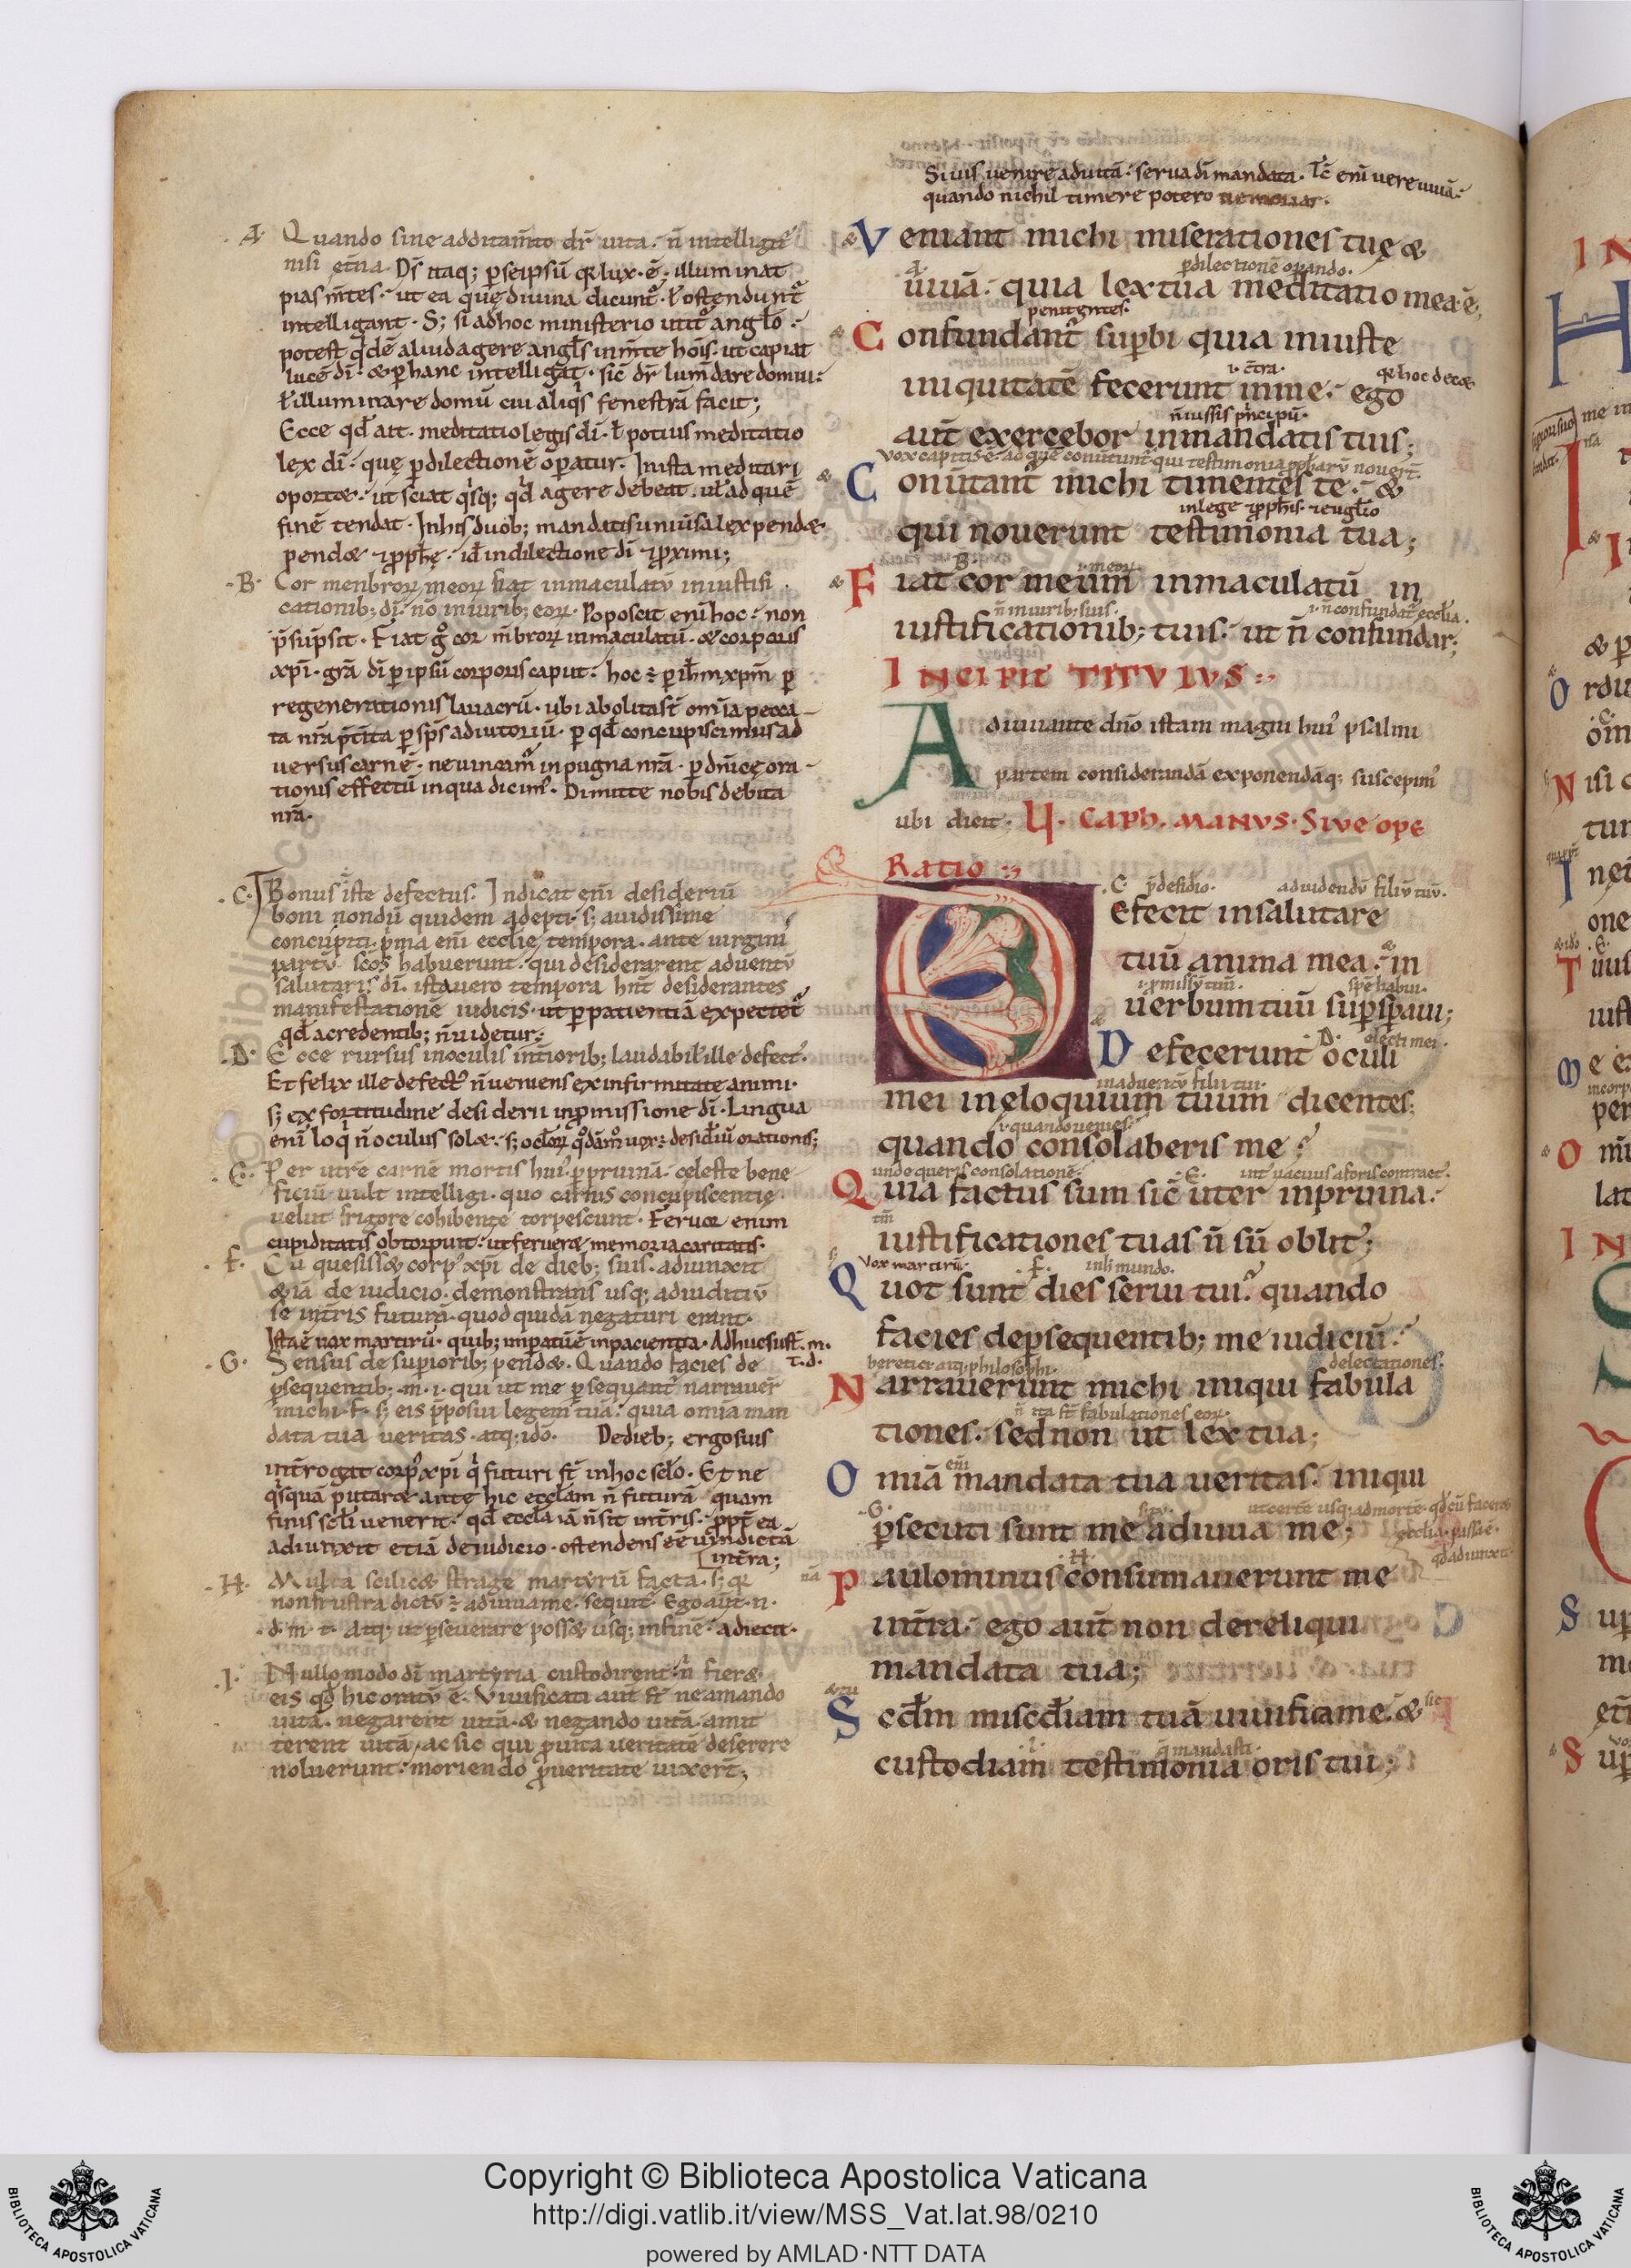 Si uis uenire ad uitā. serua dī mandata. Tc̄ enī uere uiuā.
quando nichil timere potero ne moriar.
A. Quando sine additam̄to dr̄ uita. n̄ intelligit
nisi et̄na. Ds̄ itaq; p seipsū qr lux. ē. illuminat
pias m̄tes. ut ea quę diuina dicunt̄. ł ostendunt̄
intelligant. S; si ad hoc ministerio utit̄ angło.
potest qdē aliud agere angls in m̄te hōis. ut capiat
lucē dī. & p hanc intelligat. sic̄ dr̄ lum̄ dare domui.
ł illuminare domū cui aliqs fenestrā facit;
Ecce qd ait. meditatio legis dī. ł potius meditatio
lex dī. quę p dilectionē opatur. In ista meditari
oportet. ut sciat qsq; qd agere debeat. uł ad quē
finē tendat. In his duob; mandatis uniūsa lex pendet
pendet & pphę. id in dilectione dī & pximi;
B. Cor menbroꝝ meoꝝ fiat inmaculatū in iustifi
cationib; dī. nō in uirib; eoꝝ. Poposcit enī hoc. non
p̄sūpsit. Fiat gͦ cor m̄broꝝ inmaculatū. & corporis
xpī. grā dī p ipsū corporis caput. hoc ē p ih̄m xpm̄ p
regenerationis lauacrū. ubi abolita st̄ om̄ia pecca
ta nrā p̄t̄ita p sps̄ adiutoriū. p qd concupiscimus ad
uersus carnē. ne uincam̄ in pugna nrā. p dn̄icę ora
tionis effectū in qua dicim̄. Dimitte nobis debita
nrā.
C. Bonus iste defectus. Indicat enī desideriū
boni nondū quidem adepti. s; auidissime
concupiti. p̄ma enī ecclię tempora. ante uirginis
partū. scōs habuerunt. qui desiderarent aduentū
salutaris dī. ista uero tempora hn̄t desiderantes
manifestationē iudicis. ut p patientiā expectet̄
qd a credentib; n̄ uidetur.
D. Ecce rursus in oculis int̄iorib; laudabił ille defect̄.
Et felix ille defect̄ n̄ ueniens ex infirmitate animi.
s; ex fortitudine desiderii in pmissione dī. Lingua
enī loq n̄ oculus solet. s;
E. Per utrē carnē mortis hui. p pruinā. cęleste bene
ficiū uult intelligi. quo carnis concupiscentię
uelut frigore cohibente torpescunt. Feruor enim
cupiditatis obtorpuit. ut ferueret memoria caritatis.
F. Cū quesisset corp̄ xpī de dieb; suis. adiunxit
etiā de iudicio. demonstrans usq; ad iuditiū
se in t̄ris futurā. quod quidā negaturi erant.
Ista ē uox martirū. quib; impatū ē in pacientia. Adhuc sust̄. m.
t. d.
G. Sensus de superiorib; pendet. Quando facies de
psequentib; m. i. qui ut me psequant̄ narrauer̄
michi. f. s; eis p̄posui legem tuā. quia omīa man
data tua ueritas. atq; ido. De dieb; ergo suis
int̄rogat corp̄ xpī q futuri st̄ in hoc scło. Et ne
qsquā putaret ante hic ecclam n̄ futurā quam
finis scłi uenerit. qd eccła iā n̄ sit in t̄ris. ppt̄ ea
adiunxit etiā de iudicio. ostendens eē uīndictā
int̄ra;
H. Multa scilicet strage martyrū facta. s; qr
non frustra dictū ē adiuua me. sequit̄. Ego aut̄. n.
d. m. t. Atq; ut pseuerare posset usq; in finē. adiecit.
I. Nullo modo dī martyria custodirent. n̄ fieret
eis qd hic oratū ē. Viuificati aut̄ st̄ ne amando
uitā. negarent uitā. & negando uitā. amit
terent uitā. ac sic qui p uita ueritatē deserere
noluerunt. moriendo p ueritate uixer̄t;
& Veniant michi miserationes tuę &
A. p dilectionē opando.
uiuā. quia lex tua meditatio mea ē;
penitentes.
& Confundant̄ supbi quia iniuste
.i. c̄tra. qr hoc decet
iniquitatē fecerunt in me. ego
n̄ iussis p̄ncipū.
aut̄ exercebor in mandatis tuis;
Vox capitis ē. ad quē conūtunt̄ qui testimonia pphaꝝ nouer̄t
& Conūtant̄ michi timentes te. &
in lege & pphis. & euglio
qui nouerunt testimonia tua;
B. i. meoꝝ.
& Fiat cor meum inmaculatū in
n̄ in uirib; suis. .i. n̄ confundat̄ ecclīa.
iustificationib; tuis. ut n̄ confundar;
INCIPIT TITVLVS
Adiuuante dn̄o istam magni hui psalmi
partem considerandā exponendāq; suscepim̄
ubi dicit. CAPH. MANVS. SIVE OPE
RATIO
C. p̄ desidio. ad uidendū filiū tuū.
Defecit in salutare
tuū anima mea. & in
i. pmissū tuū. spē habui.
uerbum tuū supspaui;
D. electi mei.
& Defecerunt oculi
in aduentū filii tui.
mei in eloquium tuum dicentes;
.i. quando uenies.
quando consolaberis me?
unde queris consolationē. E. ut uacuus a foris contract̄.
Quia factus sum sic̄ uter in pruina.
tm̄
iustificationes tuas n̄ sū oblit̄;
Vox martirū. F. in h mundo.
Quot sunt dies serui tui? quando
facies de psequentib; me iudiciū.
heretici atq; philosophi. delectationes.
Narrauerunt michi iniqui fabula
n̄ ita st̄ fabulationes eoꝝ.
tiones. sed non ut lex tua;
enī
Omīa mandata tua ueritas. iniqui
G. ut certe usq; ad mortē. qd cū faceret
psecuti sunt me adiuua me;
ecclīa. passa ē.
qd adiunxit
H.
Paulominus consumauerunt me
int̄ra. ego aut̄ non dereliqui
mandata tua;
& tu sic
Scdm̄ misc̄diam tuā uiuifica me. &
I. q̄ mandasti.
custodiam testimonia oris tui;
Copyright © Biblioteca Apostolica Vaticana
http://digi.vatlib.it/view/MSS_Vat.lat.98/0210
powered by AMLAD·NTT DATA
BIBLIOTECA APOSTOLICA VATICANA
BIBLIOTECA APOSTOLICA VATICANA